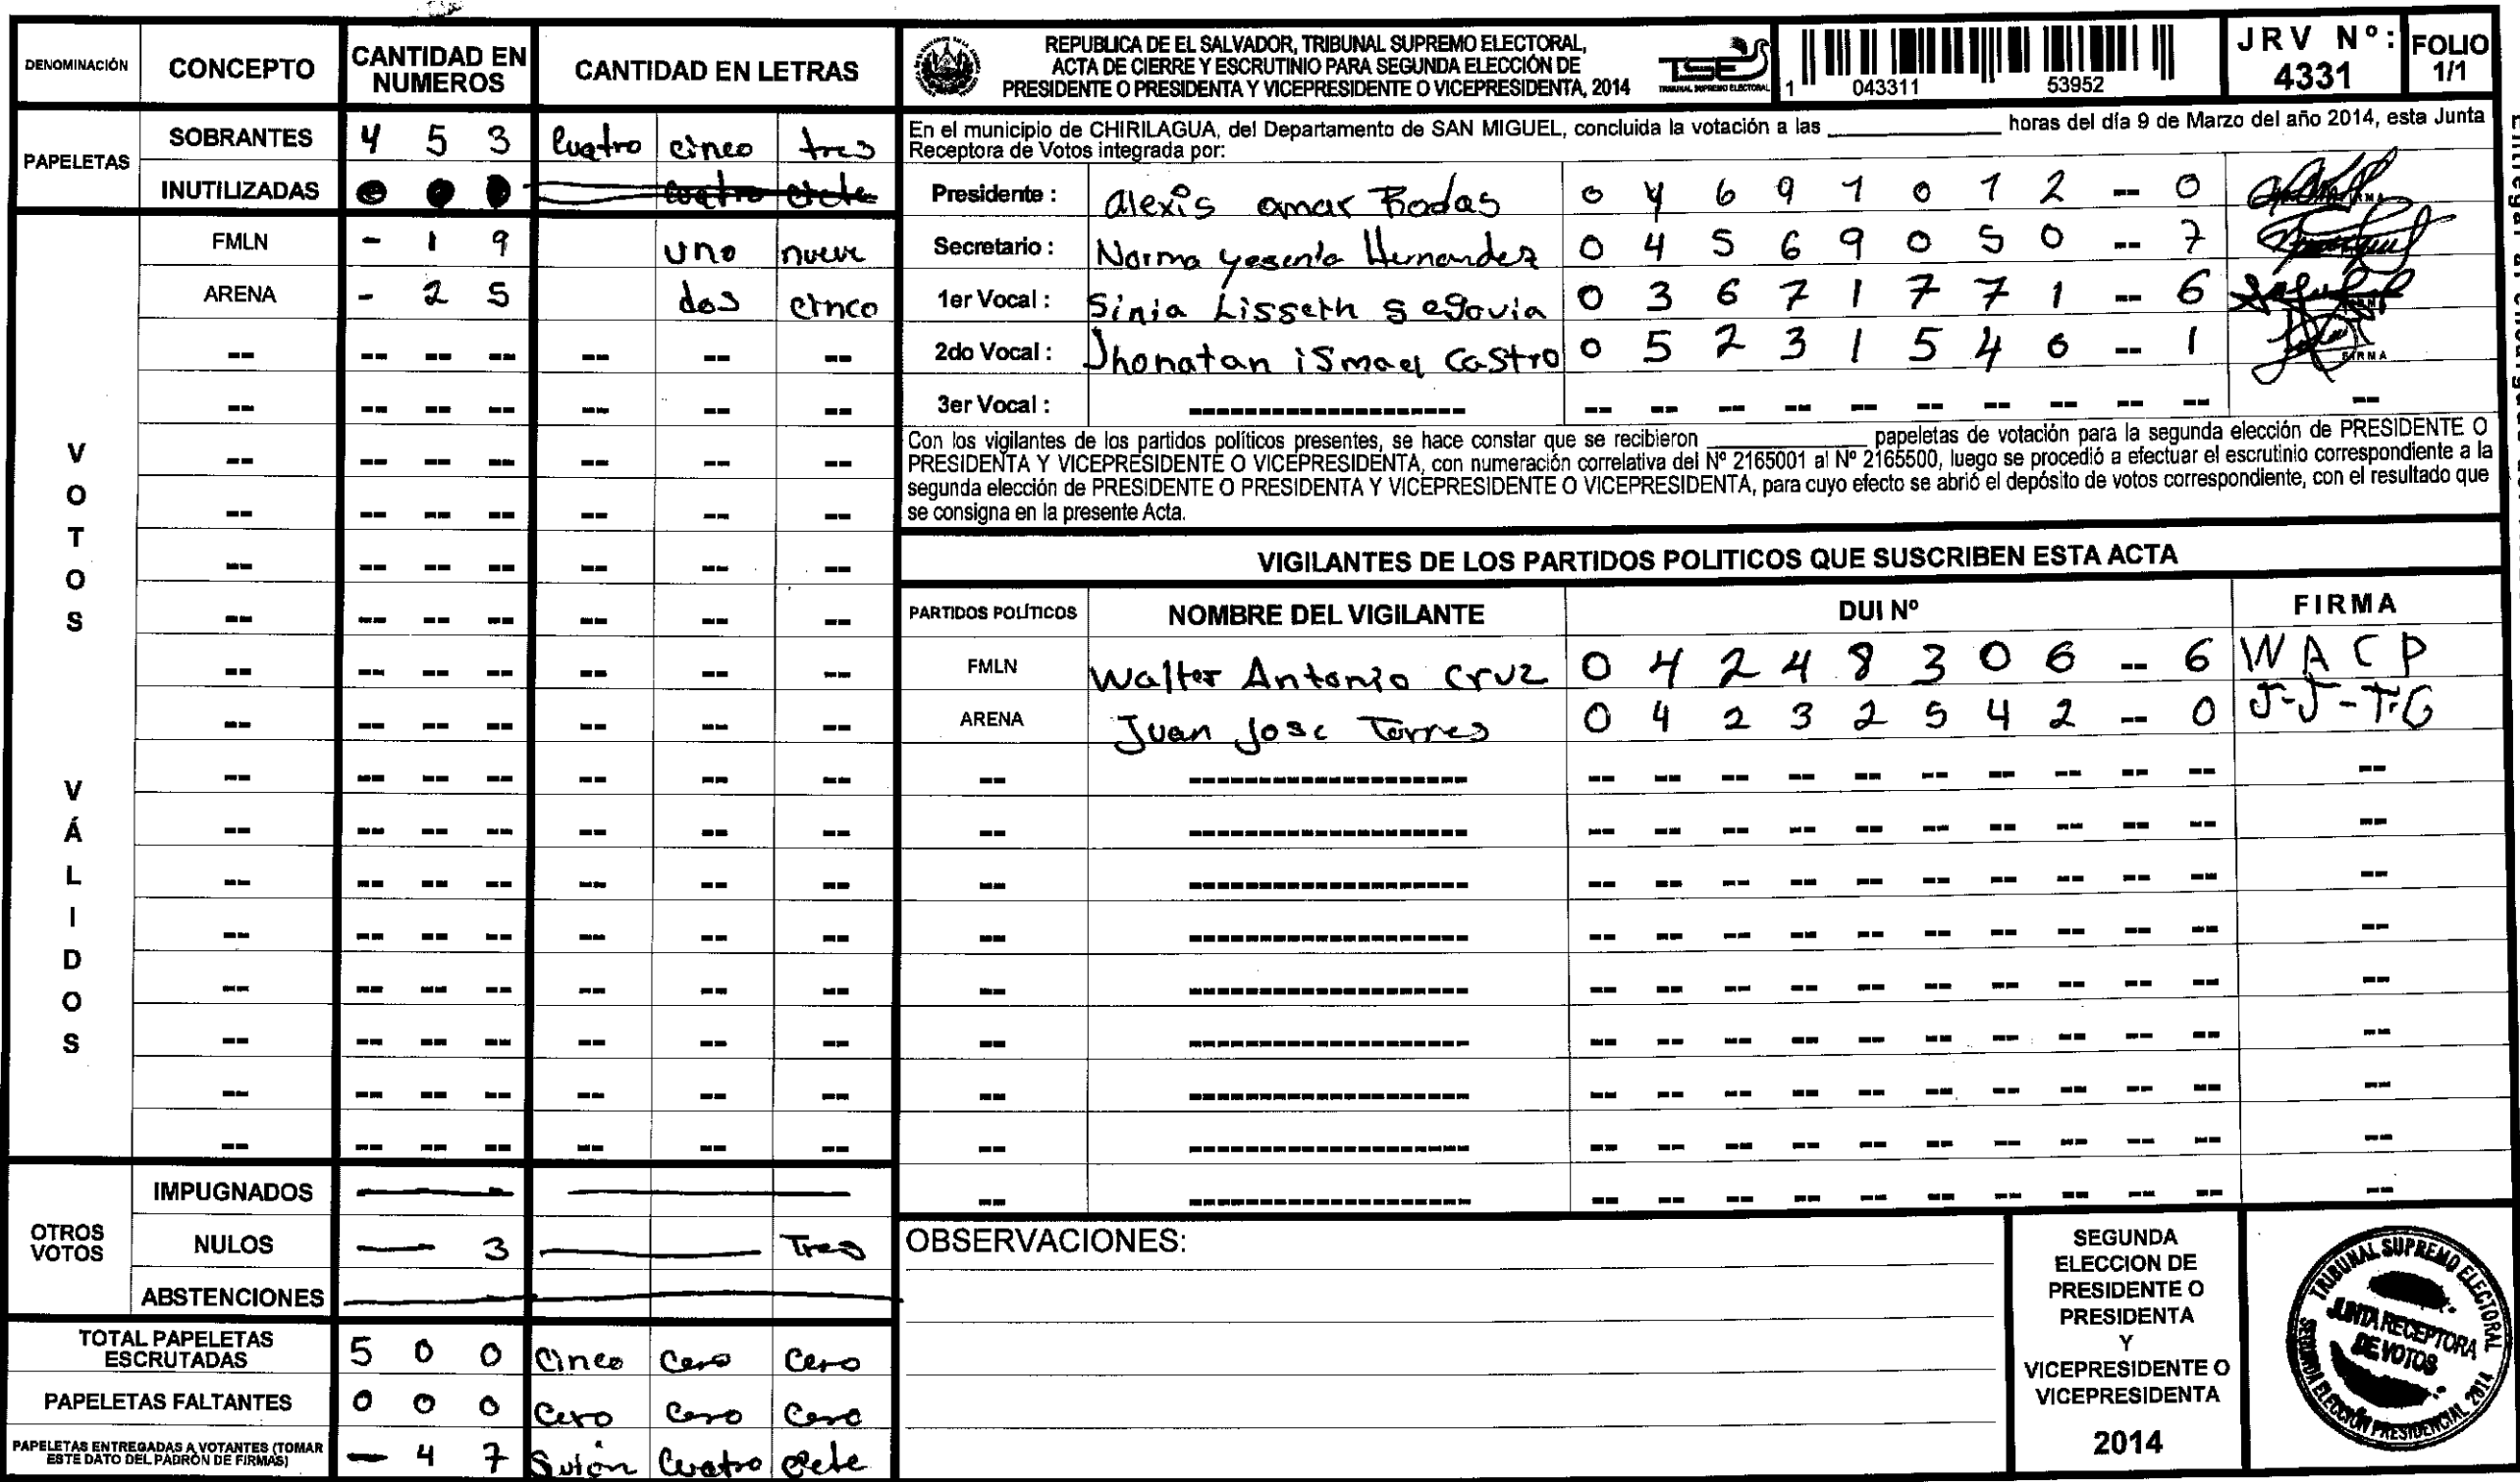 DENOMINACIÓN CONCEPTO CANTIDAD EN NUMEROS CANTIDAD EN LETRAS
PAPELETAS
SOBRANTES 4 5 3 Cuatro cinco tres
INUTILIZADAS
VOTOS VÁLIDOS
FMLN - 1 9 uno nueve
ARENA - 2 5 dos cinco
OTROS VOTOS
IMPUGNADOS
NULOS 3 Tres
ABSTENCIONES
TOTAL PAPELETAS ESCRUTADAS 5 0 0 Cinco Cero Cero
PAPELETAS FALTANTES 0 0 0 Cero Cero Cero
PAPELETAS ENTREGADAS A VOTANTES (TOMAR ESTE DATO DEL PADRÓN DE FIRMAS) - 4 7 Guión Cuatro ciete
REPUBLICA DE EL SALVADOR, TRIBUNAL SUPREMO ELECTORAL,
ACTA DE CIERRE Y ESCRUTINIO PARA SEGUNDA ELECCIÓN DE
PRESIDENTE O PRESIDENTA Y VICEPRESIDENTE O VICEPRESIDENTA, 2014
TSE
TRIBUNAL SUPREMO ELECTORAL
1 043311 53952
JRV Nº: 4331
FOLIO 1/1
En el municipio de CHIRILAGUA, del Departamento de SAN MIGUEL, concluida la votación a las ____________ horas del día 9 de Marzo del año 2014, esta Junta
Receptora de Votos integrada por:
Presidente : Alexis omar Rodas 0 4 6 9 1 0 1 2 -- 0
Secretario : Norma yesenia Hernandez 0 4 5 6 9 0 5 0 -- 7
1er Vocal : Sinia Lisseth Segovia 0 3 6 7 1 7 7 1 -- 6
2do Vocal : Jhonatan ismael Castro 0 5 2 3 1 5 4 0 -- 1 FIRMA
3er Vocal :
Con los vigilantes de los partidos políticos presentes, se hace constar que se recibieron ____________ papeletas de votación para la segunda elección de PRESIDENTE O
PRESIDENTA Y VICEPRESIDENTE O VICEPRESIDENTA, con numeración correlativa del Nº 2165001 al Nº 2165500, luego se procedió a efectuar el escrutinio correspondiente a la
segunda elección de PRESIDENTE O PRESIDENTA Y VICEPRESIDENTE O VICEPRESIDENTA, para cuyo efecto se abrió el depósito de votos correspondiente, con el resultado que
se consigna en la presente Acta.
VIGILANTES DE LOS PARTIDOS POLITICOS QUE SUSCRIBEN ESTA ACTA
PARTIDOS POLÍTICOS NOMBRE DEL VIGILANTE DUI Nº FIRMA
FMLN Walter Antonio Cruz 0 4 2 4 8 3 0 6 -- 6 W A C P
ARENA Juan Jose Torres 0 4 2 3 2 5 4 2 -- 0 J-J-T-G
OBSERVACIONES:
SEGUNDA
ELECCION DE
PRESIDENTE O
PRESIDENTA
Y
VICEPRESIDENTE O
VICEPRESIDENTA
2014
TRIBUNAL SUPREMO ELECTORAL
JUNTA RECEPTORA
DE VOTOS
SEGUNDA ELECCIÓN PRESIDENCIAL 2014